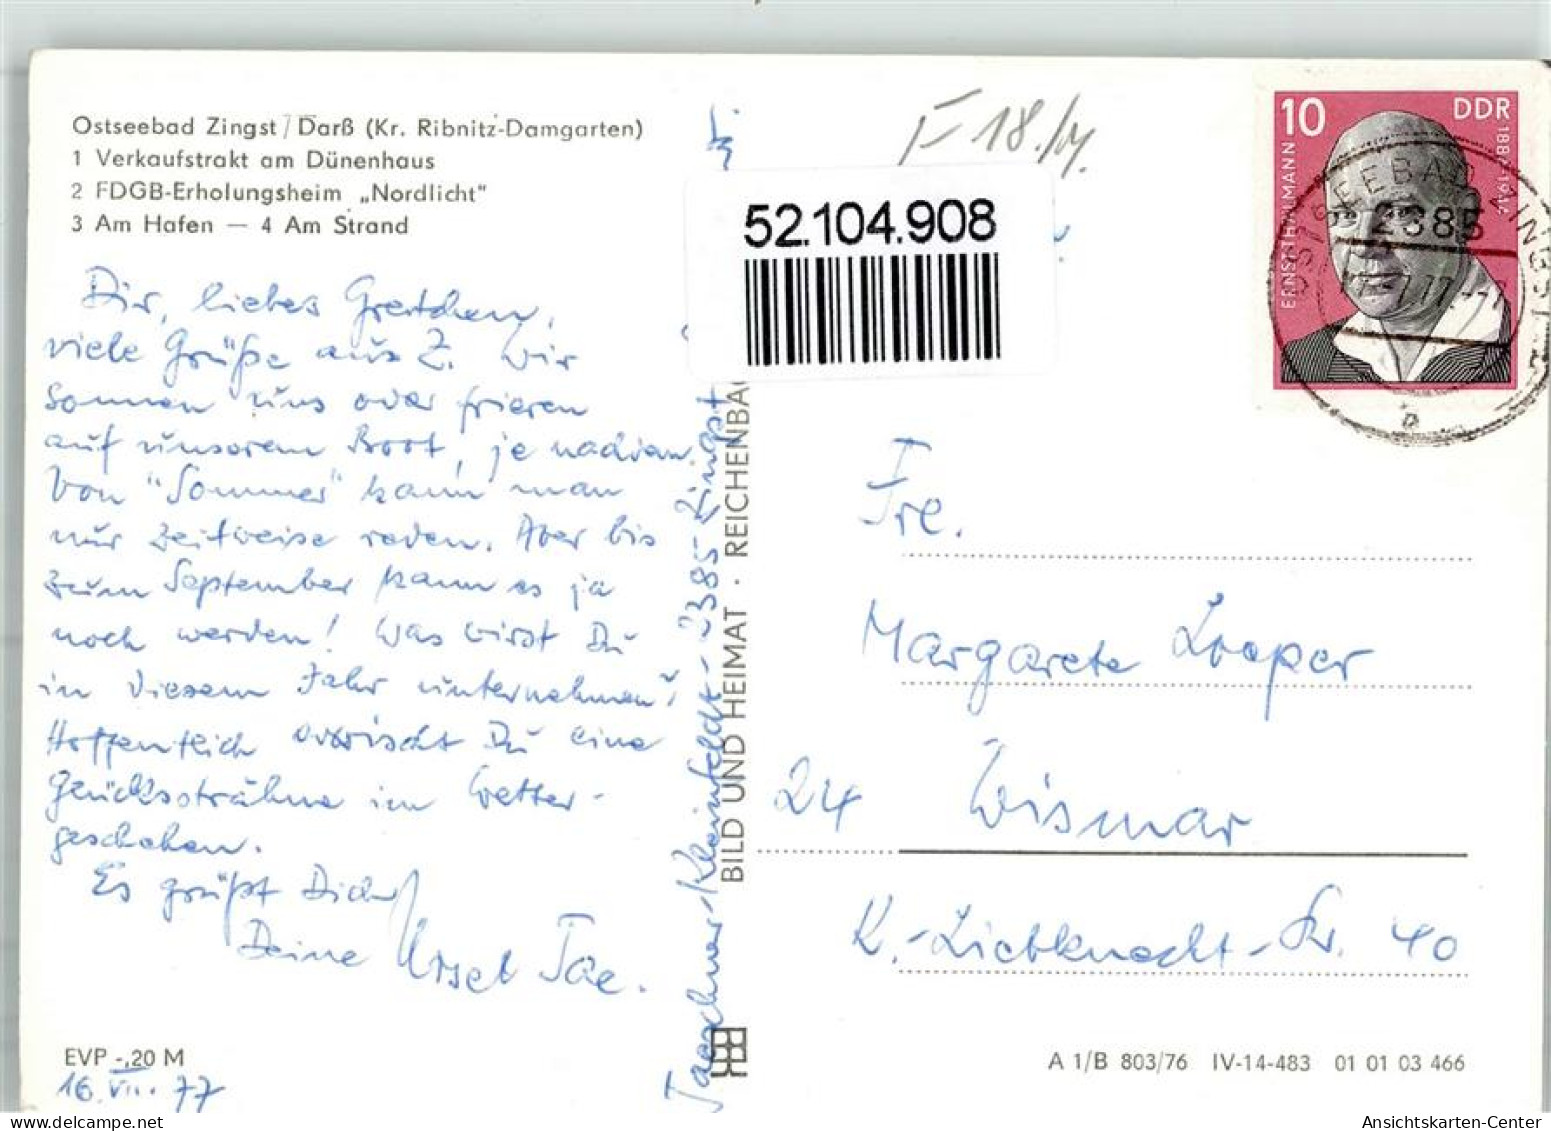 Ostseebad Zingst / Darß (Kr. Ribnitz-Damgarten)
1 Verkaufstrakt am Dünenhaus
2 FDGB-Erholungsheim „Nordlicht"
3 Am Hafen — 4 Am Strand
Dir, liebes Gretchen,
viele Grüße aus Z. Wir
sonnen uns oder frieren
auf unserem Boot, je nachdem.
Von "Sommer" kann man
nur zeitweise reden. Aber bis
zum September kann es ja
noch werden! Was wirst Du
in diesem Jahr unternehmen?
Hoffentlich erwischt Du eine
Glückssträhne im Wetter-
geschehen.
Es grüßt Dich
Deine Ursel Tae.
EVP -,20 M
16. VII. 77
Taeschner-Kleinfeldt - 2385 Zingst
BILD UND HEIMAT · REICHENBA
F 18./M.
52.104.908
10 DDR
ERNST THÄLMANN
OSTSEEBAD ZINGST
2385
Frl.
Margarete Looper
24 Wismar
K.-Liebknecht-Str. 40
A 1/B 803/76 IV-14-483 01 01 03 466
Ansichtskarten-Center